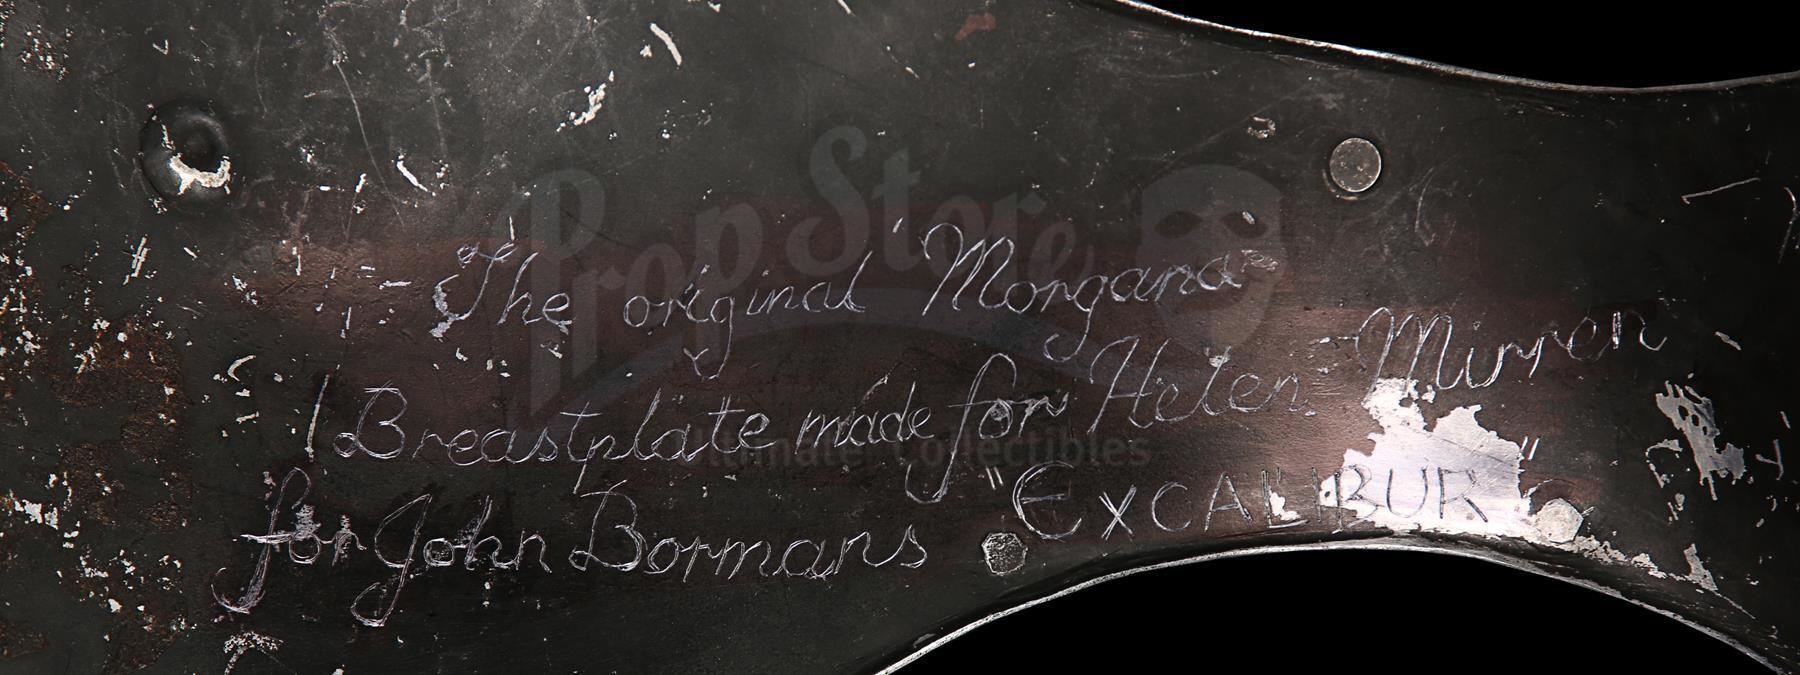 The original "Morgana"
Breastplate made for Helen Mirren
for John Bormans "EXCALIBUR"
Prop Store
Ultimate Collectibles